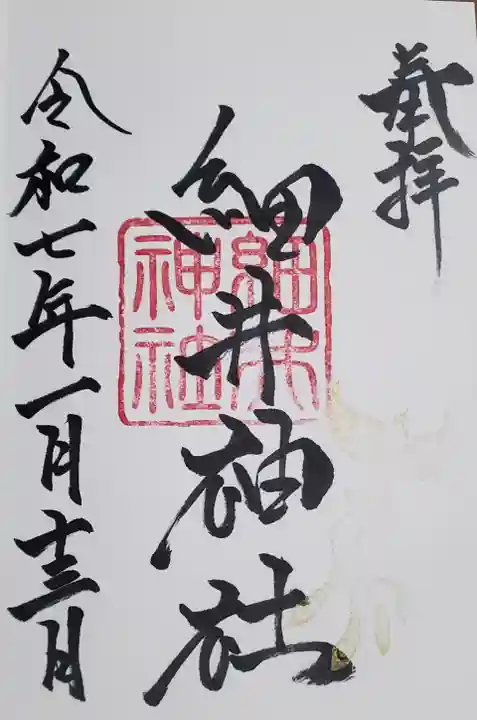 奉拝
細井神社
細井神社
令和七年一月十三日